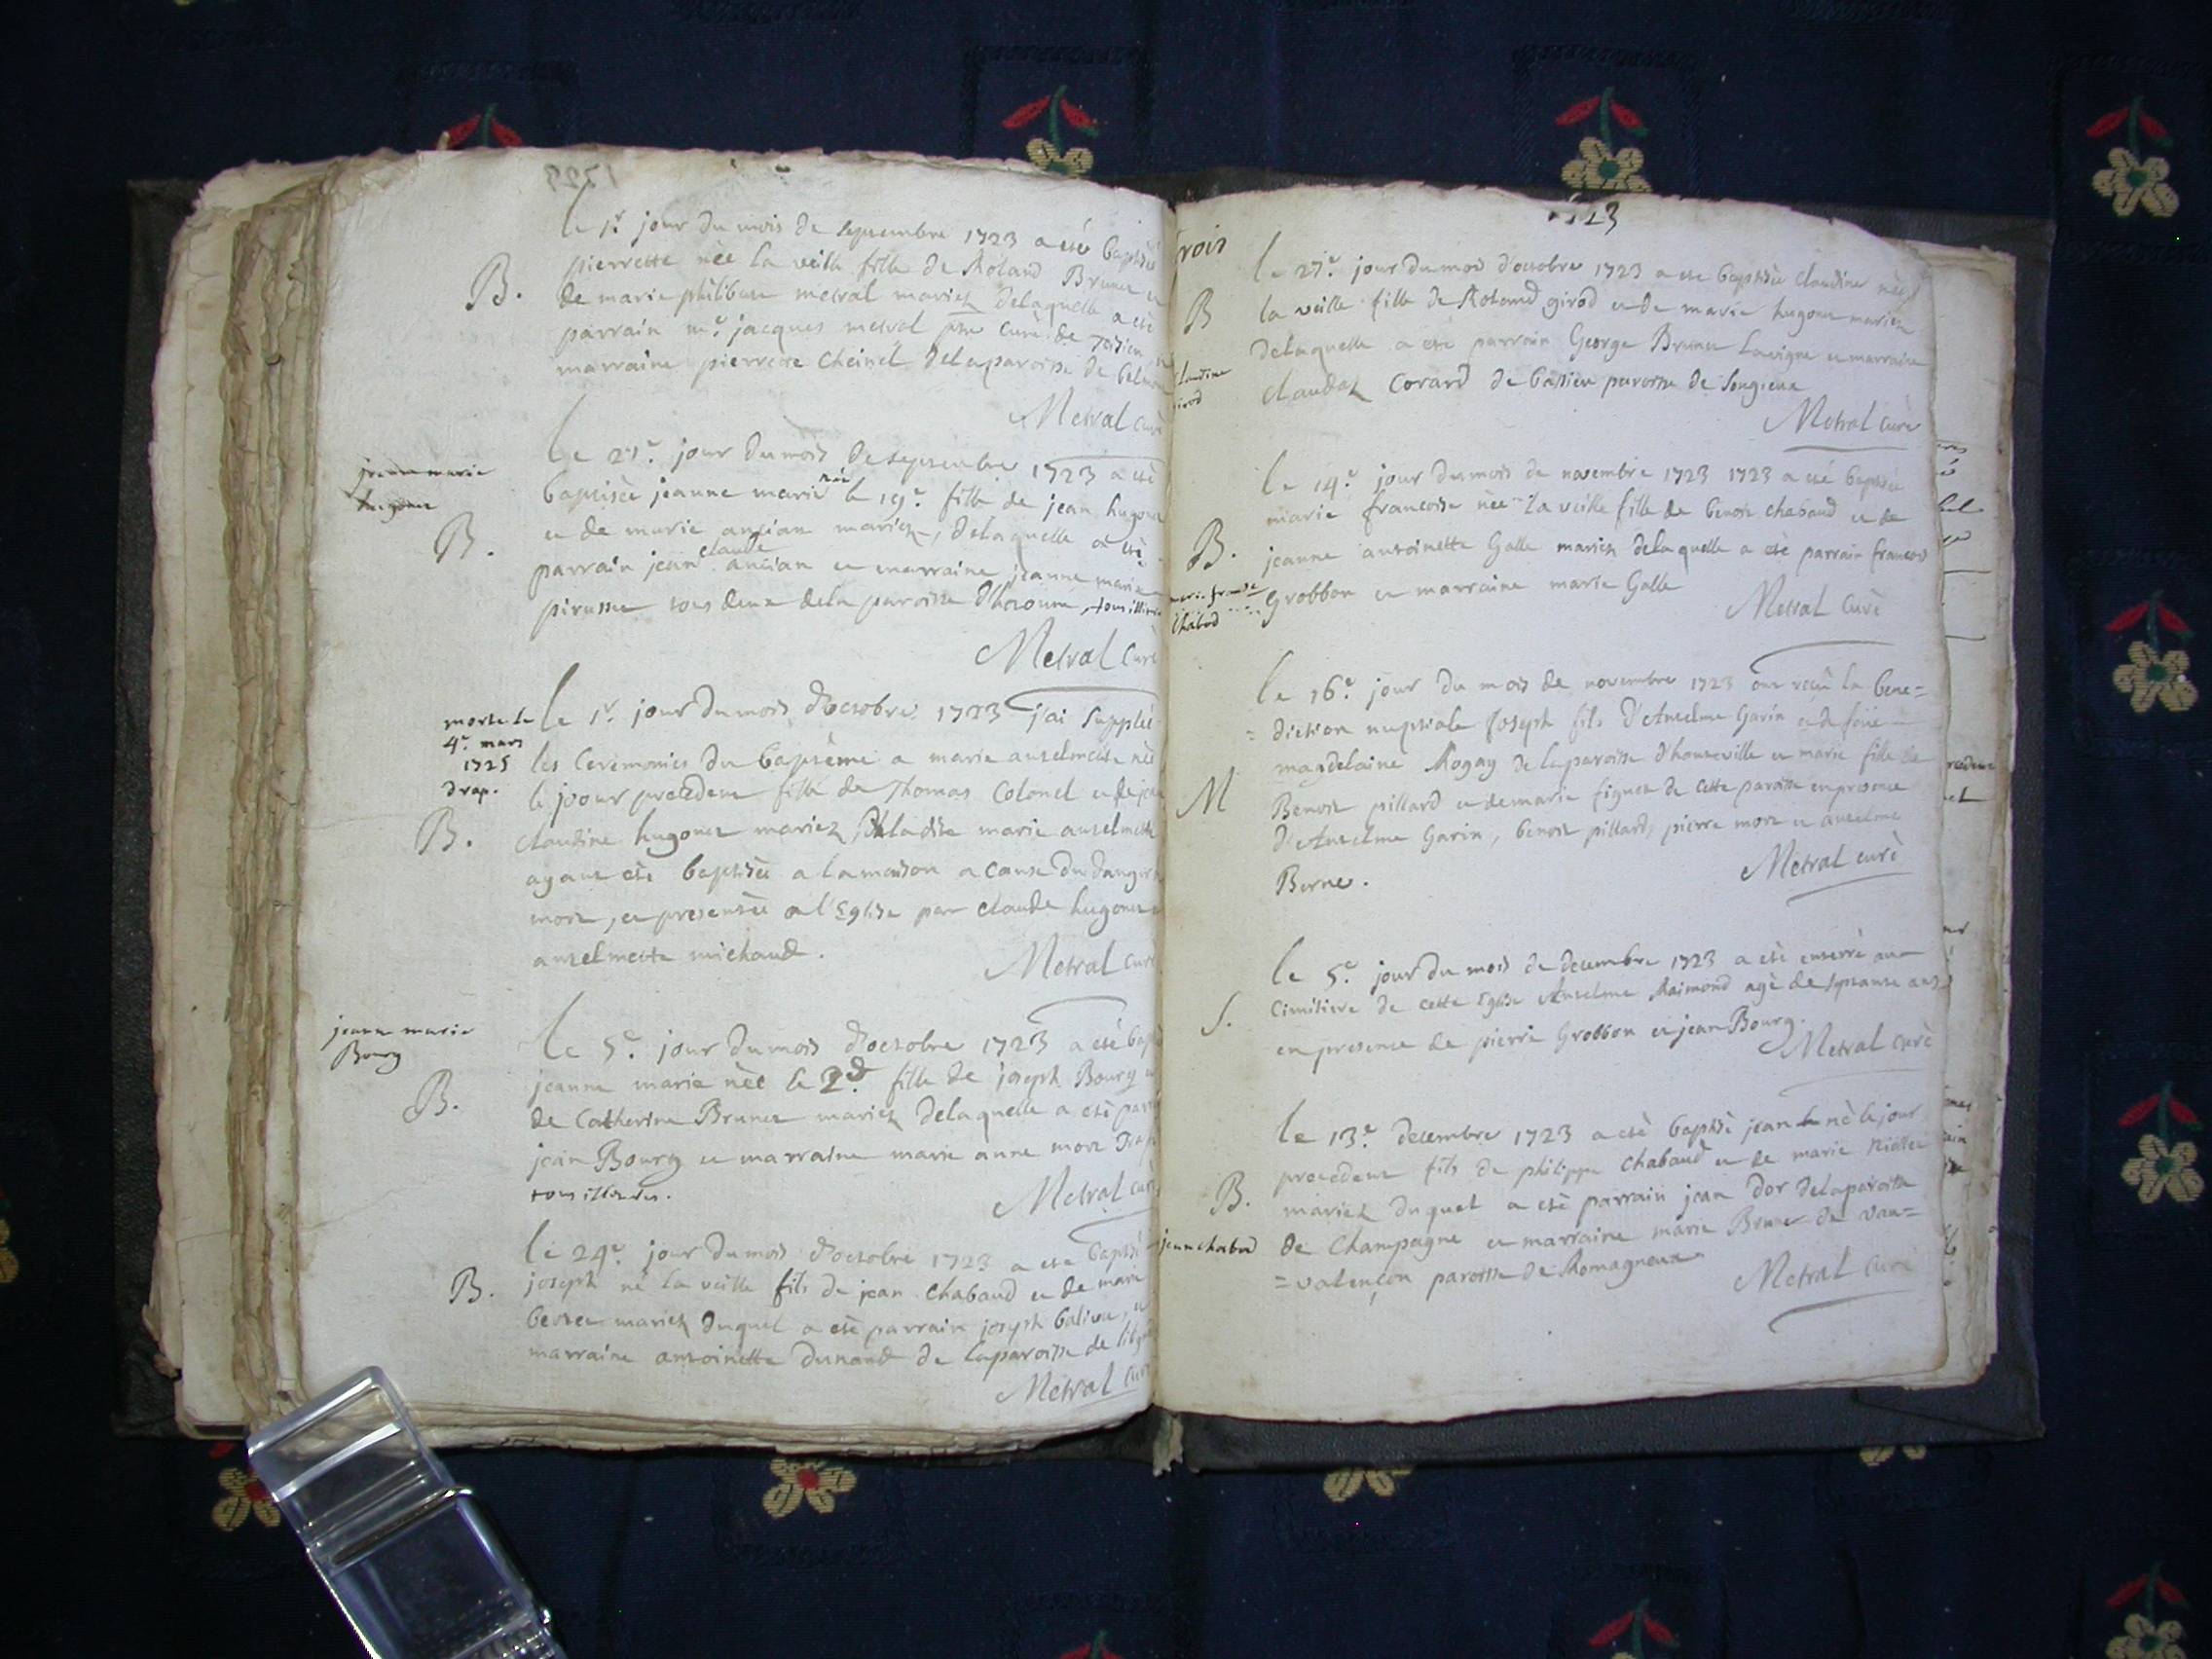 le 1r. jour du mois de septembre 1723 a eté baptisée
pierrette née la veille fille de Roland Brunet et
B.
de marie philiberte metral mariez delaquelle a eté
parrain mre. jacques metral ptre curé de
marraine pierrette Cheinel delaparoisse de belmon
Metral curé
jeanne marie
hugonet
Le 21e. jour dumois de septembre 1723 a eté
baptisée jeanne marie née le 19e. fille de jean hugonet
B.
et de marie ancian mariez, delaquelle a eté
parrain jean claude ancian et marraine jeanne marie
tous deux dela paroisse d'hotonne, tous illitérés
Metral curé
morte le
4e. mars
1725
drap.
Le 1r. jour dumois d'octobre 1723 j'ai supplée
les Ceremonies du baptême a marie anselmette née
le joour precedent fille de Thomas Colonel et de jeanne
B.
claudine hugonet mariez, ladite marie anselmette
ayant eté baptisée a lamaison a cause du danger de
mort, et presentée a l'Eglise par claude hugonet et
anselmette michaud.
Metral curé
jeanne marie
Bourg
Le 5e. jour dumois d'octobre 1723 a eté bapt
jeanne marie née le 2d. fille de joseph Bourg et
B.
de Catherine Brunet mariez delaquelle a eté parrain
jean Bourg et marraine marie anne mort Drap
tous illiterés.
Metral curé
le 24e. jour dumois d'octobre 1723 a eté baptisé
B.
joseph né la veille fils de jean chabaud et de marie
bertet mariez duquel a eté parrain joseph balivet, et
marraine antoinette dunand de laparoisse de
Metral curé
1723
trois
le 27e. jour dumois d'octobre 1723 a eté baptisée claudine née
B
la veille fille de Roland girod et de marie hugonet mariez
delaquelle a eté parrain George Brunet Lavigne et marraine
claudine
girod
claudaz Corard de bassieu paroisse de Songieux
Metral curé
le 14e. jour dumois de novembre 1723 1723 a eté baptisée
marie francoise née la veille fille de benoit chabaud et de
B.
jeanne antoinette Galle mariez delaquelle a eté parrain francois
marie francoise
chabod
Grobbon et marraine marie Galle
Metral curé
le 16e. jour du mois de novembre 1723 ont reçu la bene=
=diction nuptiale Joseph fils d'Anselme Garin et de füe
magdelaine Rogay de laparoisse d'hauteville et marie fille de
M
Benoit pillard et de marie figuet de cette paroisse enpresence
d'Anselme Garin, benoit pillard, pierre mort et anselme
Burnet.
Metral curé
le 5e. jour du mois de decembre 1723 a eté enterré au
S.
Cimitiere de cette Eglise Anselme Raimond agé de septante ans
en presence de pierre Grobbon et jean Bourg.
Metral curé
le 13e. decembre 1723 a eté baptisé jean né le jour
precedent fils de philippe Chabaud et de marie
B.
mariez duquel a eté parrain jean dor delaparoisse
jean chabod
de Champagne et marraine marie Brunet de van=
=valençon paroisse de Romagneux
Metral curé